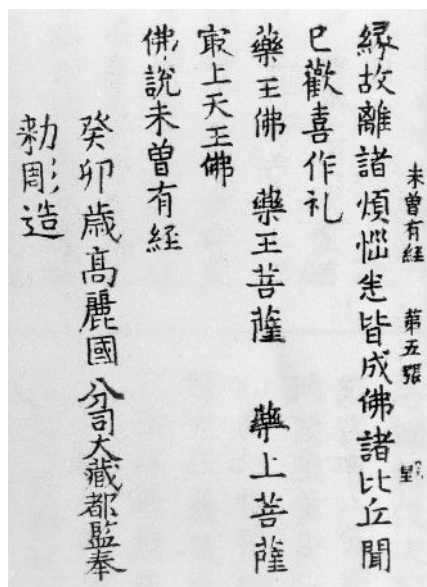 未曾有経 第五張
縁故離諸煩惱悉皆成佛諸比丘聞
已歡喜作礼
藥王佛 藥王菩薩 藥上菩薩
㝡上天王佛
佛說未曾有経
癸卯歳高麗國分司大藏都監奉
勅彫造